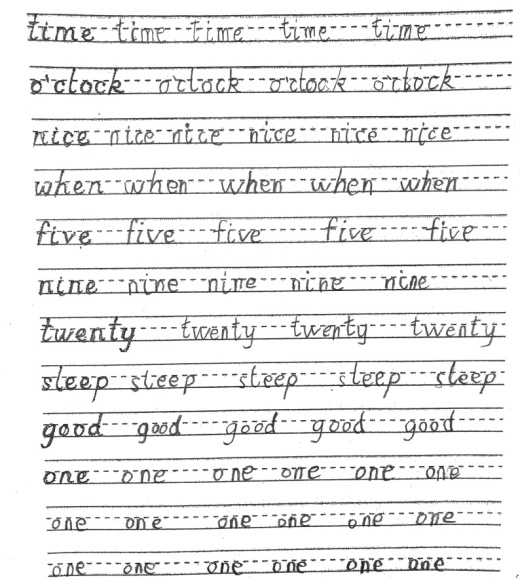 time time time time time
o'clock o'clock o'clock o'clock
nice nice nice nice nice nice
when when when when when
five five five five five
nine nine nine nine nine
twenty twenty twenty twenty
sleep sleep sleep sleep sleep
good good good good good
one one one one one one
one one one one one one
one one one one one one